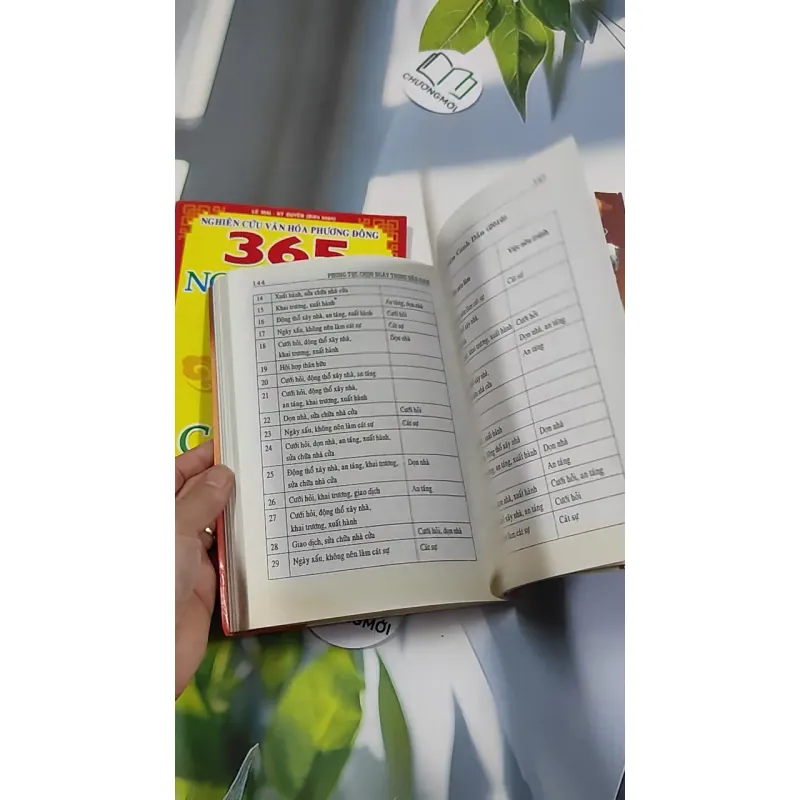 CHƯƠNGMỚI
LÊ MAI - KỲ DUYÊN (BIÊN SOẠN)
NGHIÊN CỨU VĂN HÓA PHƯƠNG ĐÔNG
365
144 PHONG TỤC CHỌN NGÀY TRONG DÂN GIAN
14 Xuất hành, sửa chữa nhà cửa
15 Khai trương, xuất hành An táng, dọn nhà
16 Động thổ xây nhà, an táng, xuất hành Cưới hỏi
17 Ngày xấu, không nên làm cát sự Cát sự
18 Cưới hỏi, động thổ xây nhà, Dọn nhà
khai trương, xuất hành
19 Hội họp thân hữu
20 Cưới hỏi, động thổ xây nhà, an táng
21 Cưới hỏi, động thổ xây nhà,
an táng, khai trương, xuất hành
22 Dọn nhà, sửa chữa nhà cửa Cưới hỏi
23 Ngày xấu, không nên làm cát sự Cát sự
24 Cưới hỏi, dọn nhà, an táng, xuất hành,
sửa chữa nhà cửa
25 Động thổ xây nhà, an táng, khai trương, Dọn nhà
sửa chữa nhà cửa
26 Cưới hỏi, khai trương, giao dịch An táng
27 Cưới hỏi, động thổ xây nhà,
khai trương, xuất hành
28 Giao dịch, sửa chữa nhà cửa Cưới hỏi, dọn nhà
29 Ngày xấu, không nên làm cát sự Cát sự
Canh Dần (2010)
Việc nên tránh
nên làm
làm cát sự Cát sự
trương, xuất hành Cưới hỏi
Dọn nhà, an táng
xây nhà, An táng
nhà cửa
xuất hành Dọn nhà
thổ xây nhà, Dọn nhà
an táng, xuất hành An táng
nhà, xuất hành Cưới hỏi, an táng
xây nhà, an táng Cưới hỏi
làm cát sự Cát sự
NGMỚI